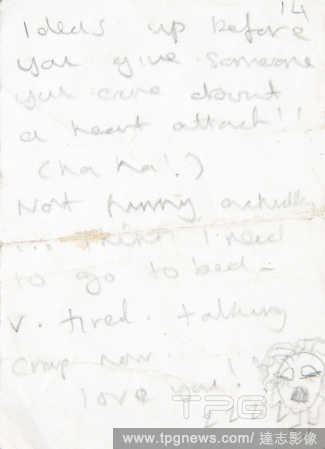 14
Ideas up before
you give someone
you care about
a heart attack!!
(ha ha!)
Not funny actually
... think I need
to go to bed -
v. tired. talking
crap now
love you!
zzzzz
TPG
www.tpgnews.com/達志影像